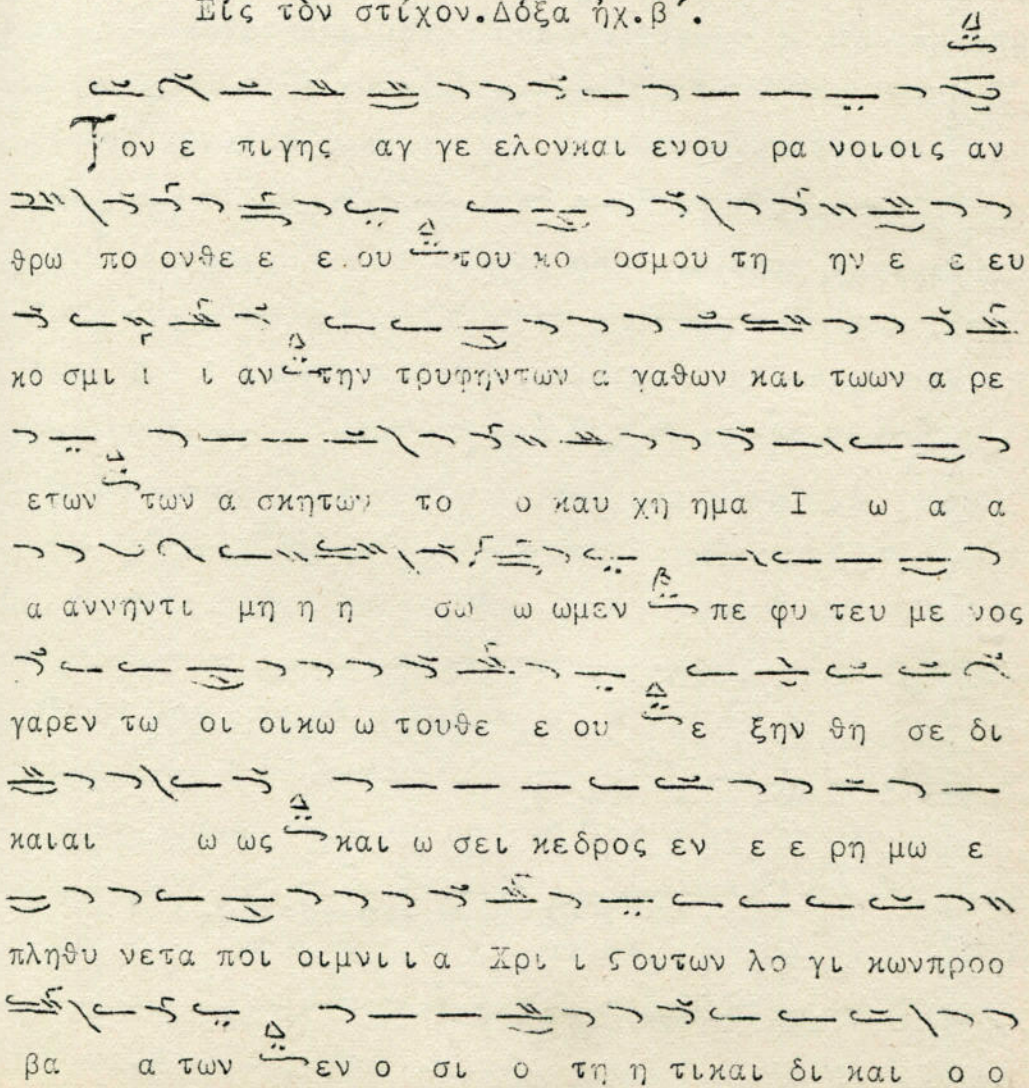 Είς τὸν στίχον.Δόξα ἠχ.β΄.
Τον ε πιγης αγ γε ελονκαι ενου ρα νοιοις αν
θρω πο ονθε ε ε.ου του κο οσμου τη ην ε ε ευ
κο σμι ι ι αν την τρυφηντων α γαθων και τωων α ρε
ετων των α σκητων το ο καυ χη ημα Ι ω α α
α αννηντι μη η η σω ω ωμεν πε φυ τευ με νος
γαρεν τω οι οικω ω τουθε ε ου ε ξην θη σε δι
καιαι ω ως και ω σει κεδρος εν ε ε ρη μω ε
πληθυ νετα ποι οιμνιι α Χρι ι ϛουτων λο γι κωνπροο
βα α των εν ο σι ο τη η τικαι δι και ο ο